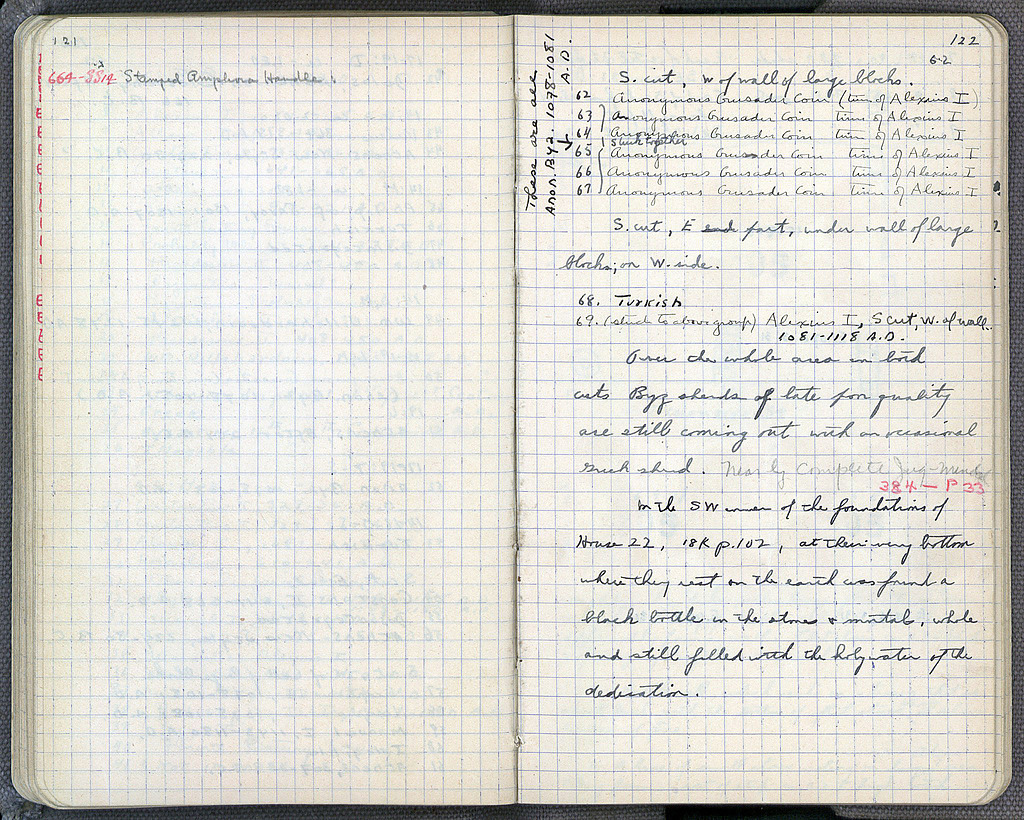 121
664-SS14 Stamped Amphora Handle.
122
6-2
These are all
Anon. Byz. 1078-1081
A.D.
S. cut, W of wall of large blocks.
62 Anonymous Crusader Coin (time of Alexius I)
63 Anonymous Crusader Coin time of Alexius I
64 Anonymous Crusader Coin time of Alexius I
stuck together
65 Anonymous Crusader Coin time of Alexius I
66 Anonymous Crusader Coin time of Alexius I
67 Anonymous Crusader Coin time of Alexius I
S. cut, E end part, under wall of large
blocks; on W. side.
68. Turkish
69. (stuck to above group) Alexius I, S cut, W. of wall.
1081-1118 A.D.
Over the whole area in both
cuts Byz sherds of late poor quality
are still coming out with an occasional
Greek sherd. Nearly Complete Jug-Mended
384 - P 33
In the SW corner of the foundations of
House 22, 18K p. 102, at their very bottom
where they rest on the earth was found a
black bottle in the stones & mortar, whole
and still filled with the holy water of the
dedication.